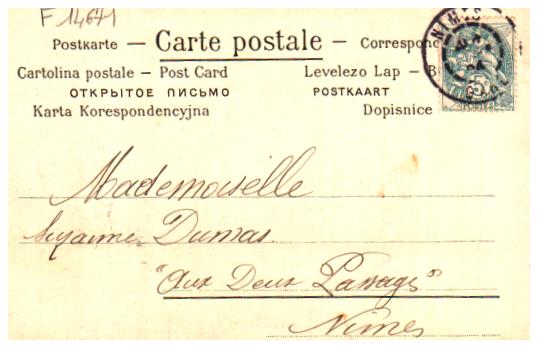 F 14671
Postkarte — Carte postale — Correspond
Cartolina postale – Post Card Levelezo Lap – B
ОТКРЫТОЕ ПИСЬМО POSTKAART
Karta Korespondencyjna Dopisnice
NIMES
5
POSTES
Mademoiselle
Suzanne Dumas
"Aux Deux Passages"
Nimes